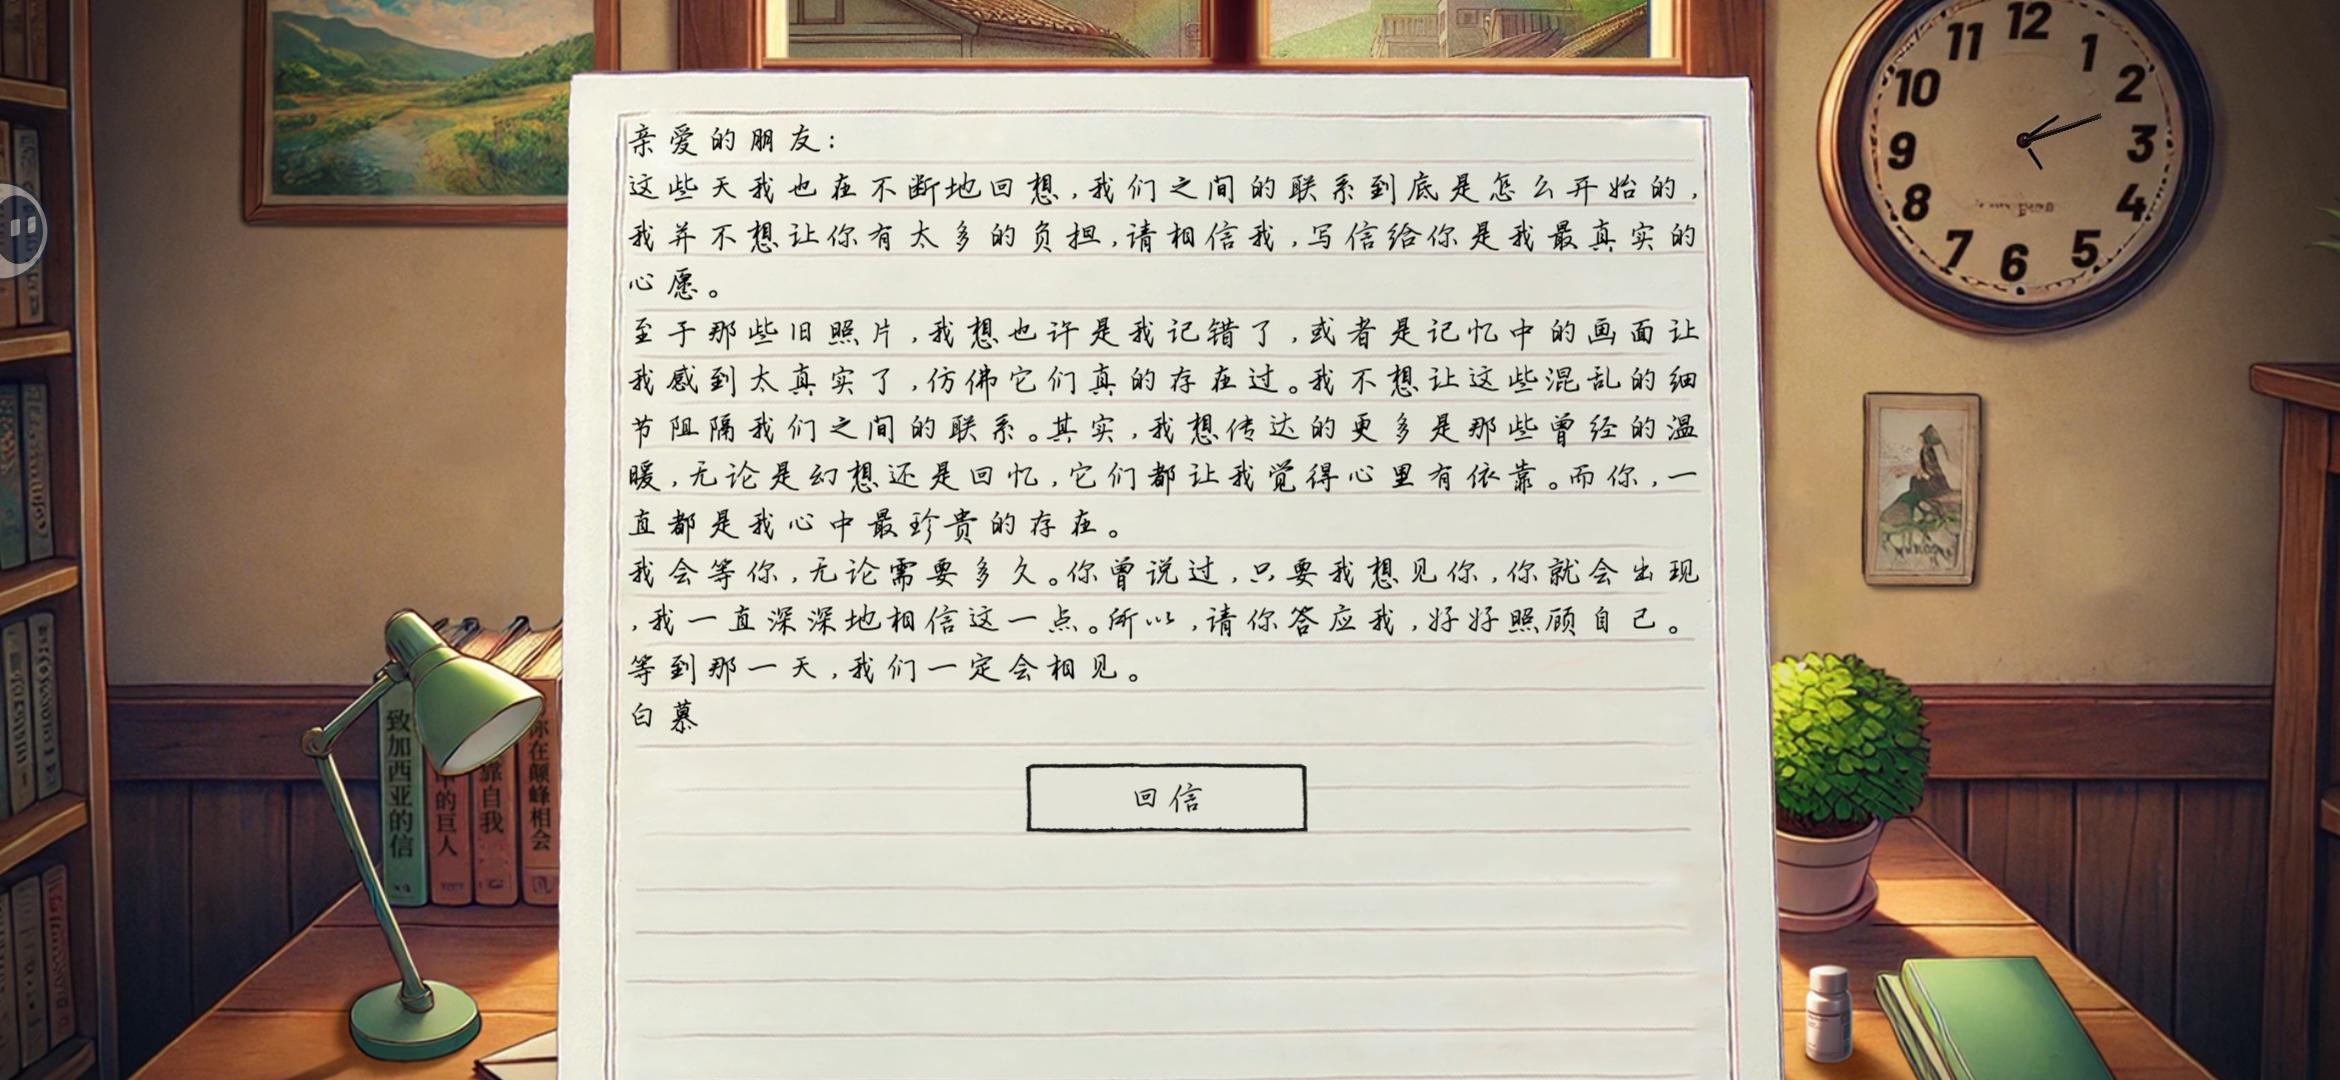 亲爱的朋友：
这些天我也在不断地回想，我们之间的联系到底是怎么开始的，
我并不想让你有太多的负担，请相信我，写信给你是我最真实的
心愿。
至于那些旧照片，我想也许是我记错了，或者是记忆中的画面让
我感到太真实了，仿佛它们真的存在过。我不想让这些混乱的细
节阻隔我们之间的联系。其实，我想传达的更多是那些曾经的温
暖，无论是幻想还是回忆，它们都让我觉得心里有依靠。而你，一
直都是我心中最珍贵的存在。
我会等你，无论需要多久。你曾说过，只要我想见你，你就会出现
，我一直深深地相信这一点。所以，请你答应我，好好照顾自己。
等到那一天，我们一定会相见。
白慕
回信
12
11
1
10
2
9
3
8
4
7
5
6
致加西亚的信
中的巨人
靠自我
你在颠峰相会